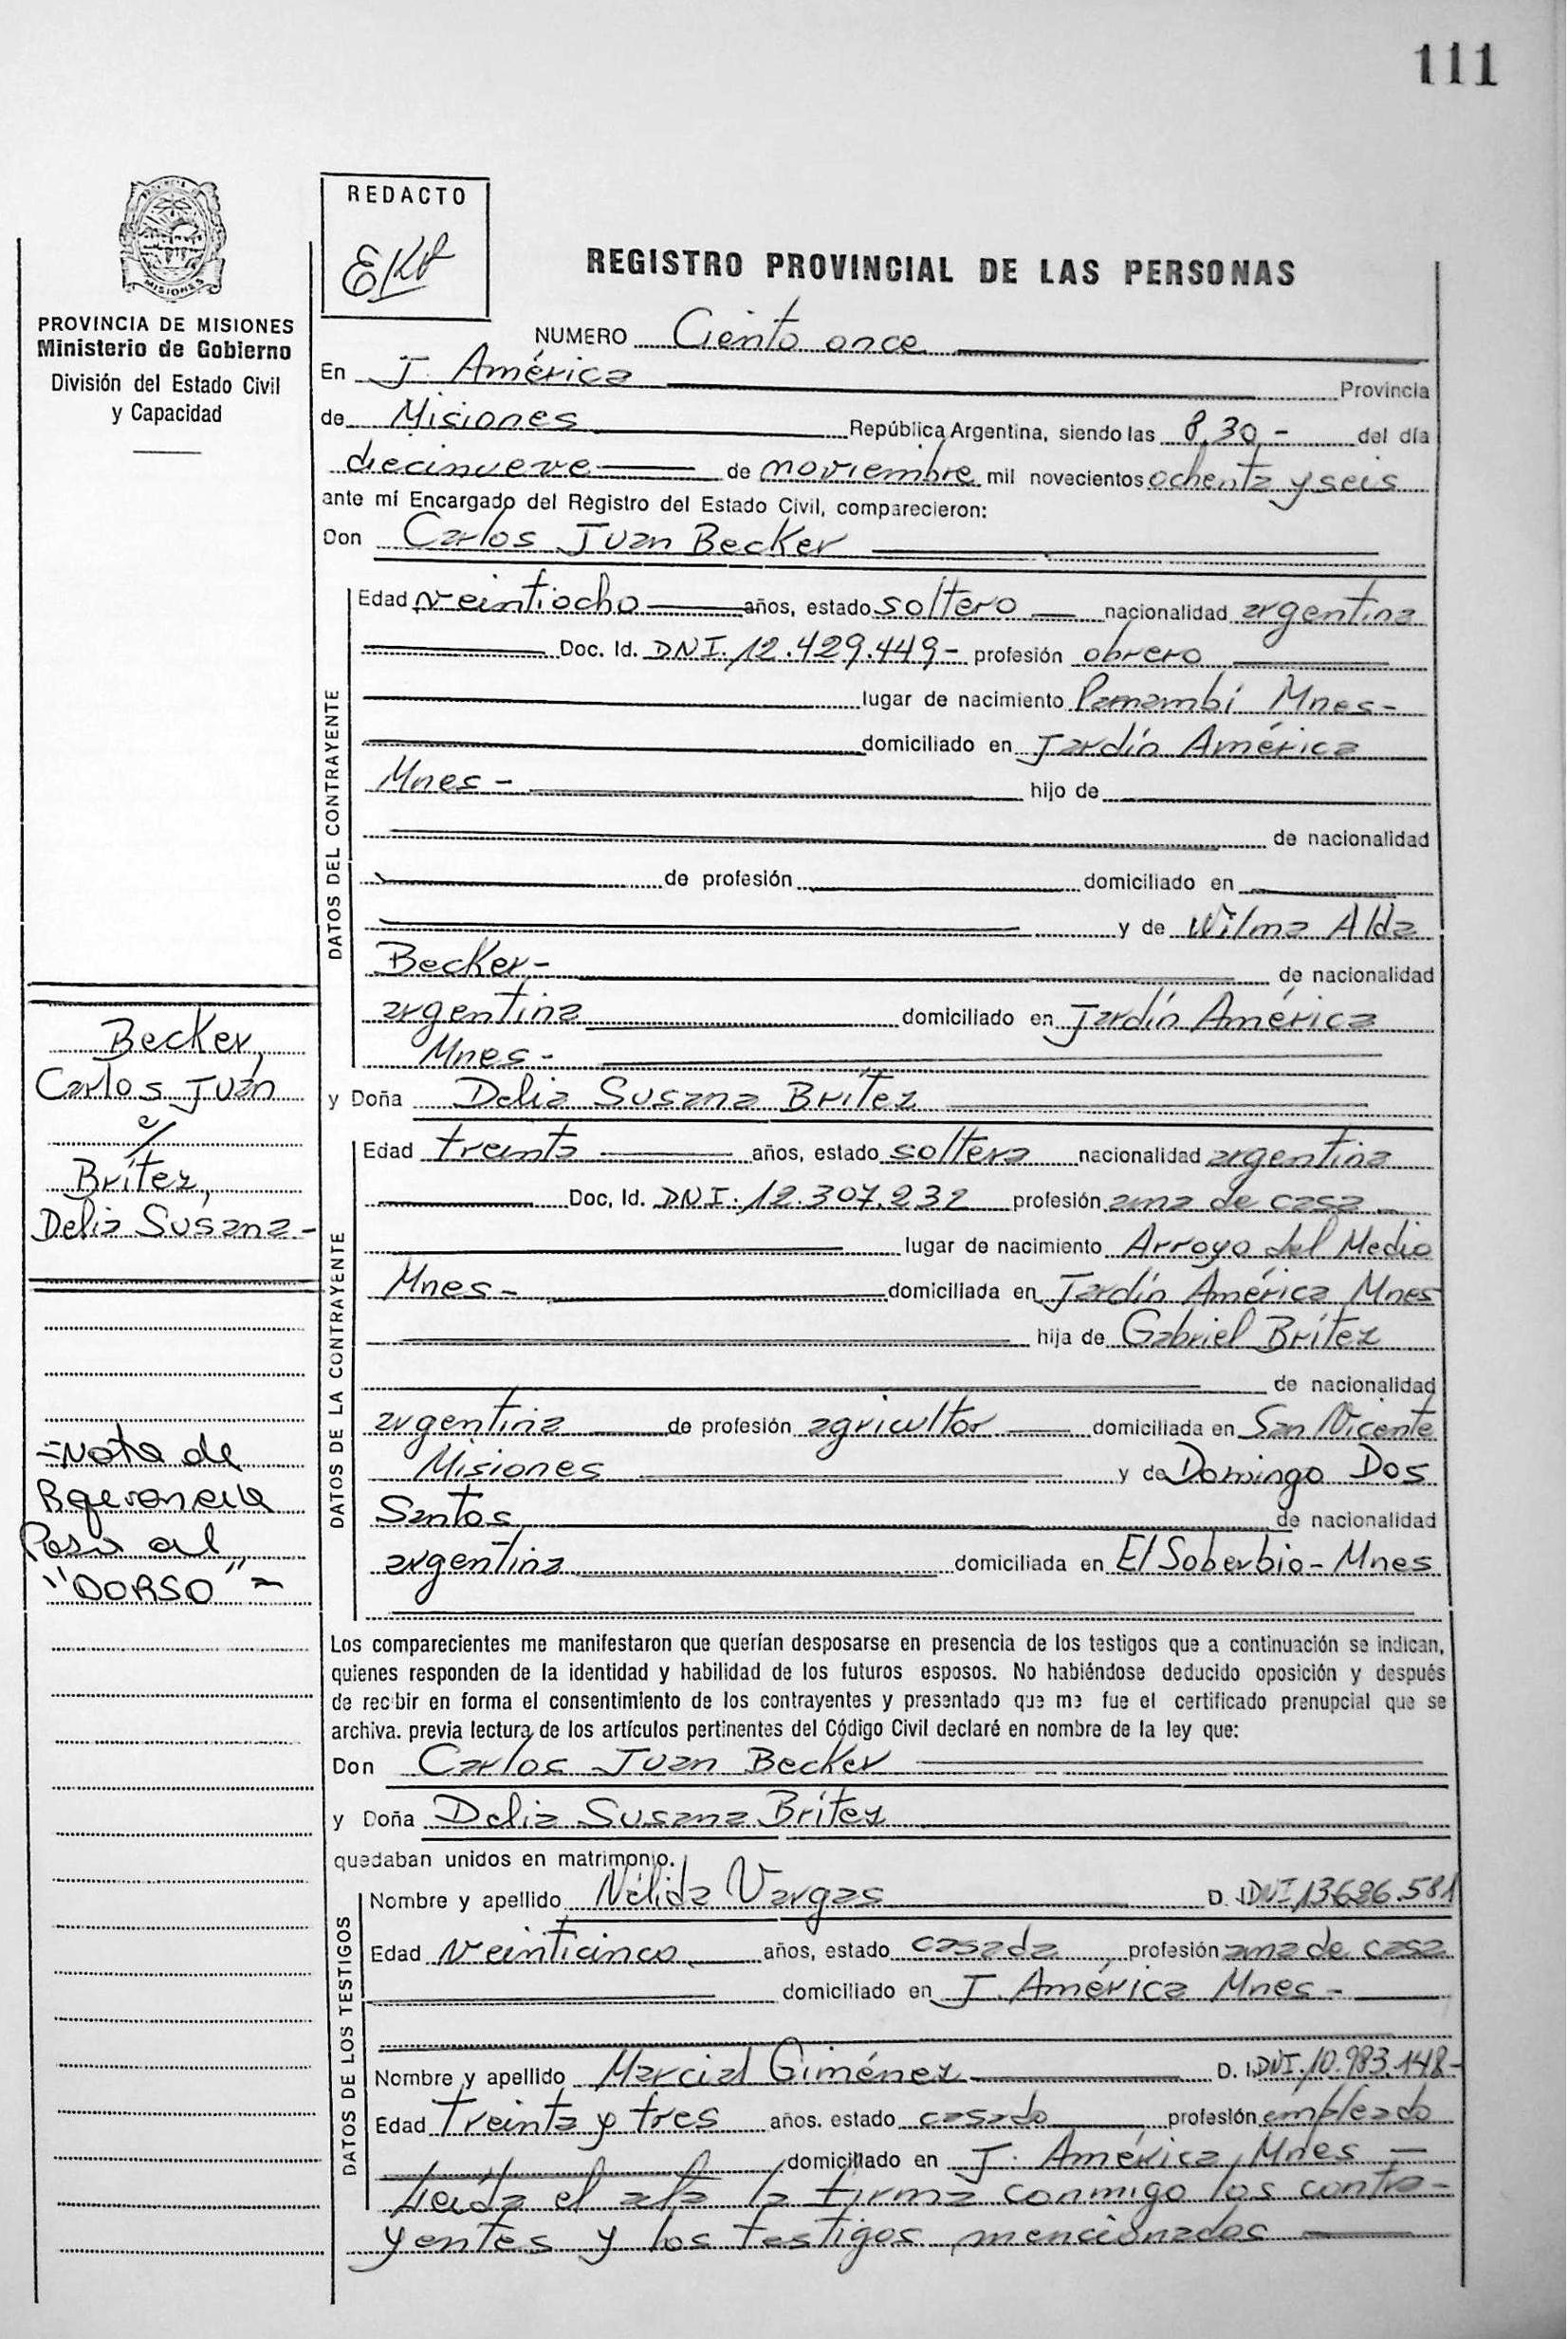 111
REDACTO
EKB
MISIONES
PROVINCIA DE MISIONES
Ministerio de Gobierno
División del Estado Civil
y Capacidad
REGISTRO PROVINCIAL DE LAS PERSONAS
NUMERO Ciento once
En J. América Provincia
de Misiones República Argentina, siendo las 8,30- del día
diecinueve de noviembre mil novecientos ochenta y seis
ante mí Encargado del Registro del Estado Civil, comparecieron:
Don Carlos Juan Becker
DATOS DEL CONTRAYENTE
Edad veintiocho años, estado soltero nacionalidad argentina
Doc. Id. DNI. 12.429.449- profesión obrero
lugar de nacimiento Panambí Mnes-
domiciliado en Jardín América
Mnes- hijo de
de nacionalidad
de profesión domiciliado en
y de Wilma Alda
Becker- de nacionalidad
argentina domiciliado en Jardín América
Mnes-
y Doña Delia Susana Brítez
DATOS DE LA CONTRAYENTE
Edad treinta años, estado soltera nacionalidad argentina
Doc, Id. DNI. 12.307.232 profesión ama de casa
lugar de nacimiento Arroyo del Medio
Mnes- domiciliada en Jardín América Mnes
hija de Gabriel Brítez
de nacionalidad
argentina de profesión agricultor domiciliada en San Vicente
Misiones y de Domingo Dos
Santos de nacionalidad
argentina domiciliada en El Soberbio-Mnes
Becker,
Carlos Juan
c/
Brítez,
Delia Susana-
=Nota de
Referencia
Pasa al
"DORSO"=
Los comparecientes me manifestaron que querían desposarse en presencia de los testigos que a continuación se indican,
quienes responden de la identidad y habilidad de los futuros esposos. No habiéndose deducido oposición y después
de recibir en forma el consentimiento de los contrayentes y presentado que me fue el certificado prenupcial que se
archiva. previa lectura de los artículos pertinentes del Código Civil declaré en nombre de la ley que:
Don Carlos Juan Becker
y Doña Delia Susana Brítez
quedaban unidos en matrimonio.
DATOS DE LOS TESTIGOS
Nombre y apellido Nélida Vargas D. I. DNI 13.626.581
Edad veinticinco años, estado casada profesión ama de casa
domiciliado en J. América Mnes-
Nombre y apellido Marcial Giménez D. I. DNI. 10.983.148-
Edad treinta y tres años. estado casado profesión empleado
domiciliado en J. América, Mnes
Leída el acta la firma conmigo los contra-
yentes y los testigos mencionados